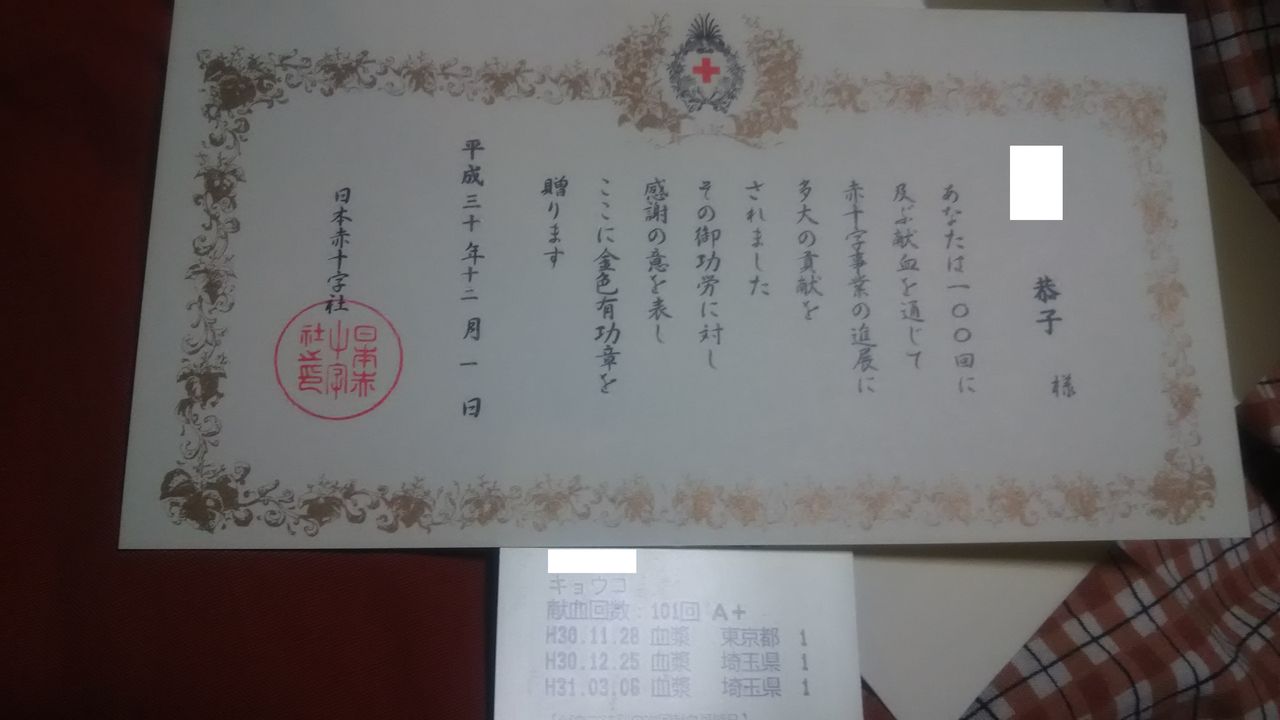 恭子 様
あなたは一〇〇回に
及ぶ献血を通じて
赤十字事業の進展に
多大の貢献を
されました
その御功労に対し
感謝の意を表し
ここに金色有功章を
贈ります
平成三十年十二月一日
日本赤十字社
日本赤
十字
社之印
キョウコ
献血回数:101回 A+
H30.11.28 血漿 東京都 1
H30.12.25 血漿 埼玉県 1
H31.03.06 血漿 埼玉県 1